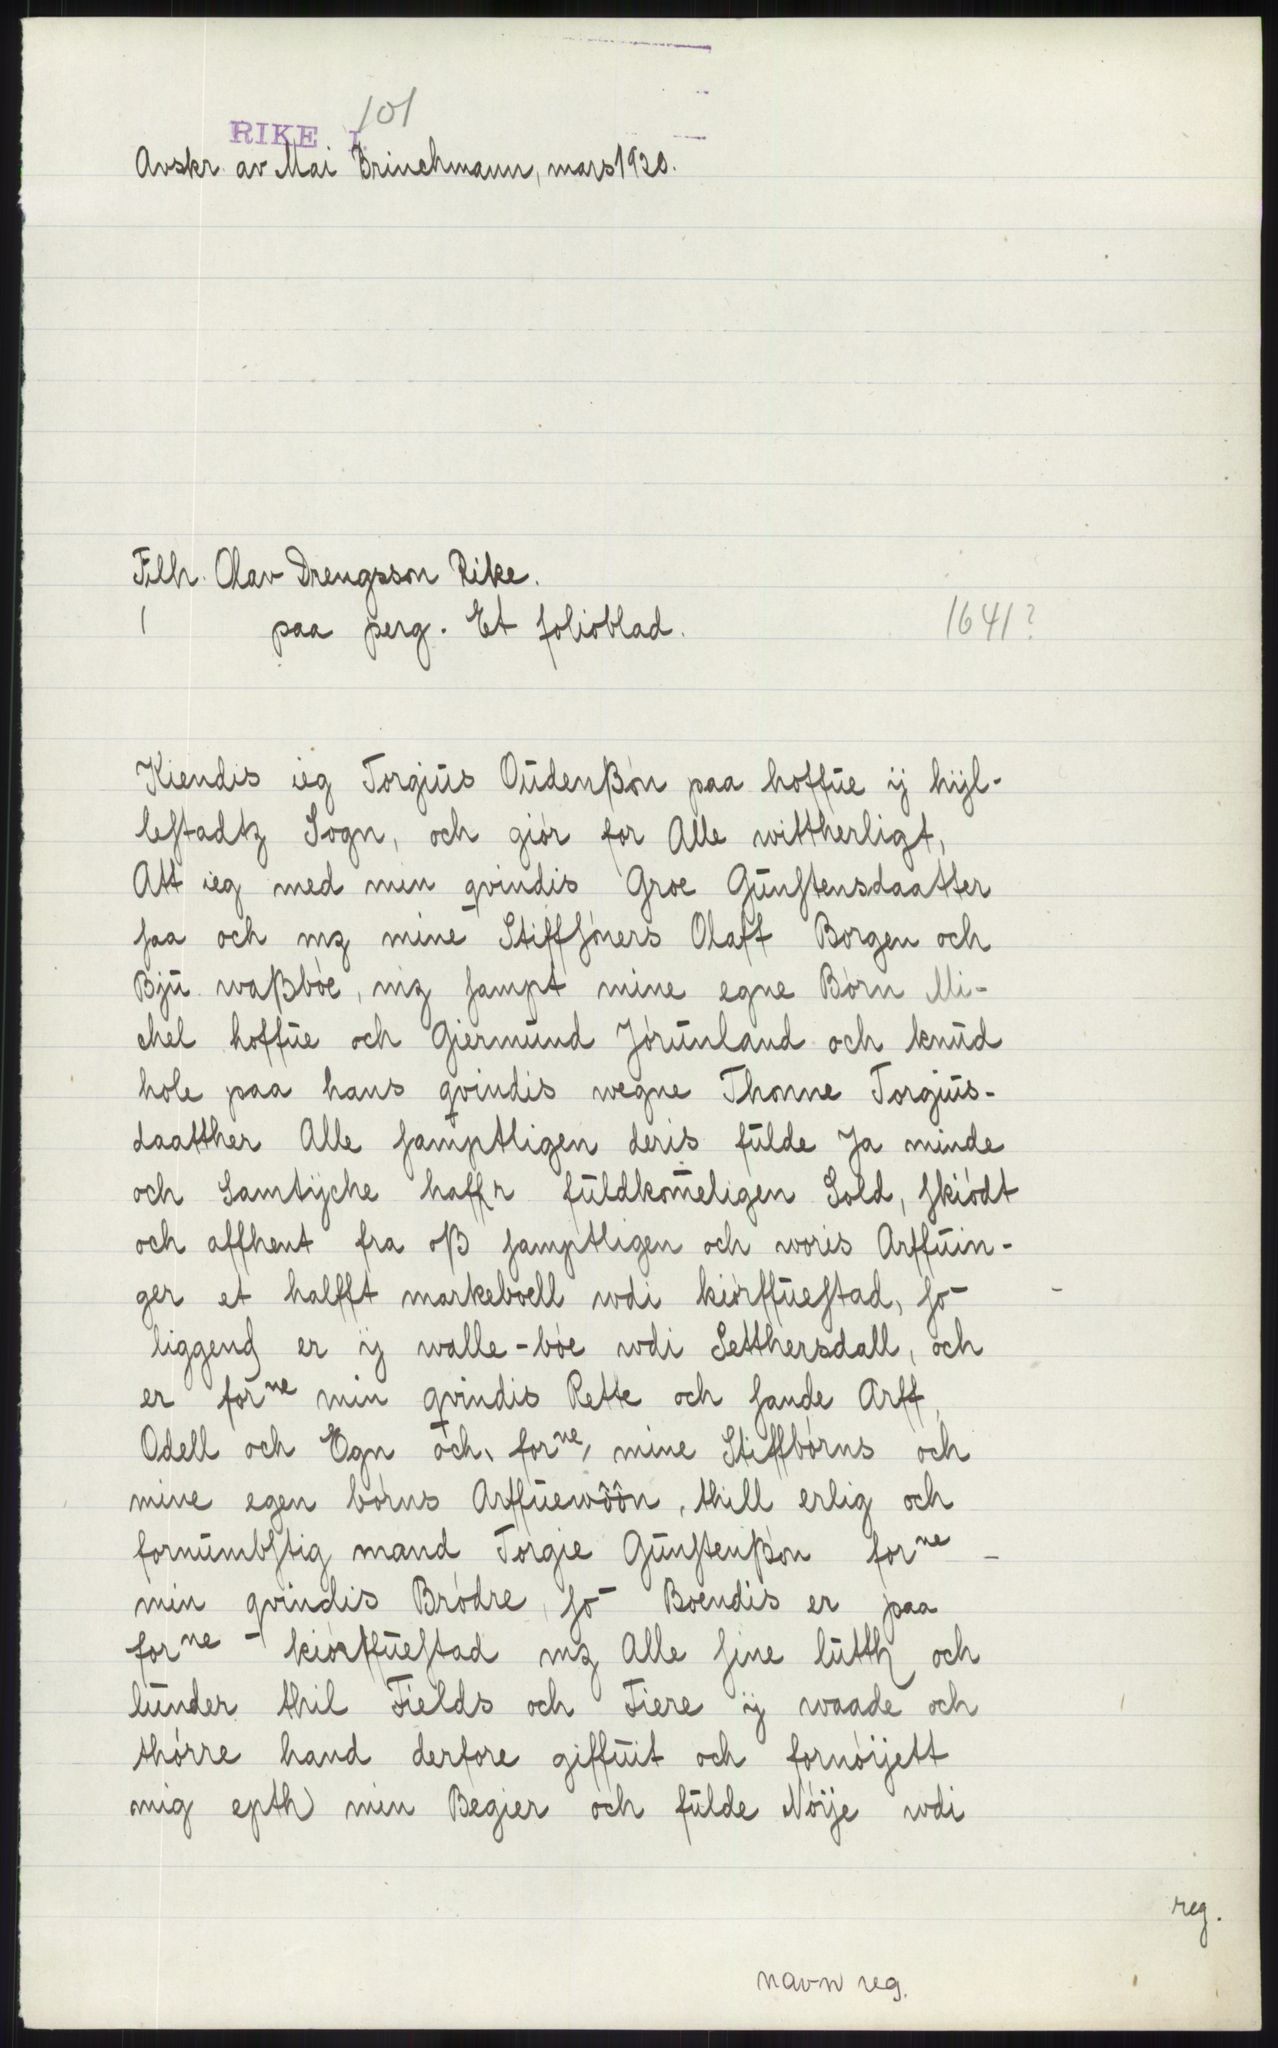 101
RIKE I.
Avskr. av Mai Brinchmann, mars 1920.
Tilh. Olav Drengsson Rike.
1641?
paa perg. Et folioblad.
Kiendis ieg Torgius Oudenßøn paa hoffue ij hijl-
lestadtz Sogn, och giør for Alle wittherligt,
Att ieg med min qvindis Groe Gunstensdaatter
saa och mz mine Stiffsøners Olaff Borgen och
Bju waßbøe, mz sampt mine egne Børn Mi-
chel hoffue och Giermund Jørunland och knud
hole paa hans qvindis wegne Thonne Torgius-
daatther Alle samptligen deris fulde Ja minde
och Samtyche haffr fuldkom̅eligen Sold, skiødt
och affhent fra oß samptligen och woris Arffuin-
ger et halfft markeboell wdi kiørffuestad, so̅
liggend er ij walle-bøe wdi Setthersdall, och
er for ne min qvindis Rette och sande Arff,
Odell och Egn och, for ne, mine Stiffbørns och
mine egen børns Arffuewôôn, thill erlig och
fornumbstig mand Torgie Gunstenßøn for ne -
min qvindis Brødre, so̅ Boendis er paa
for ne - kiørffuestad mz Alle sine lutth och
lunder thil Fields och Fiere ij waade och
thørre hand derfore giffuit och fornøijett
mig epth min Begier och fulde Nøije wdi
reg.
navn reg.